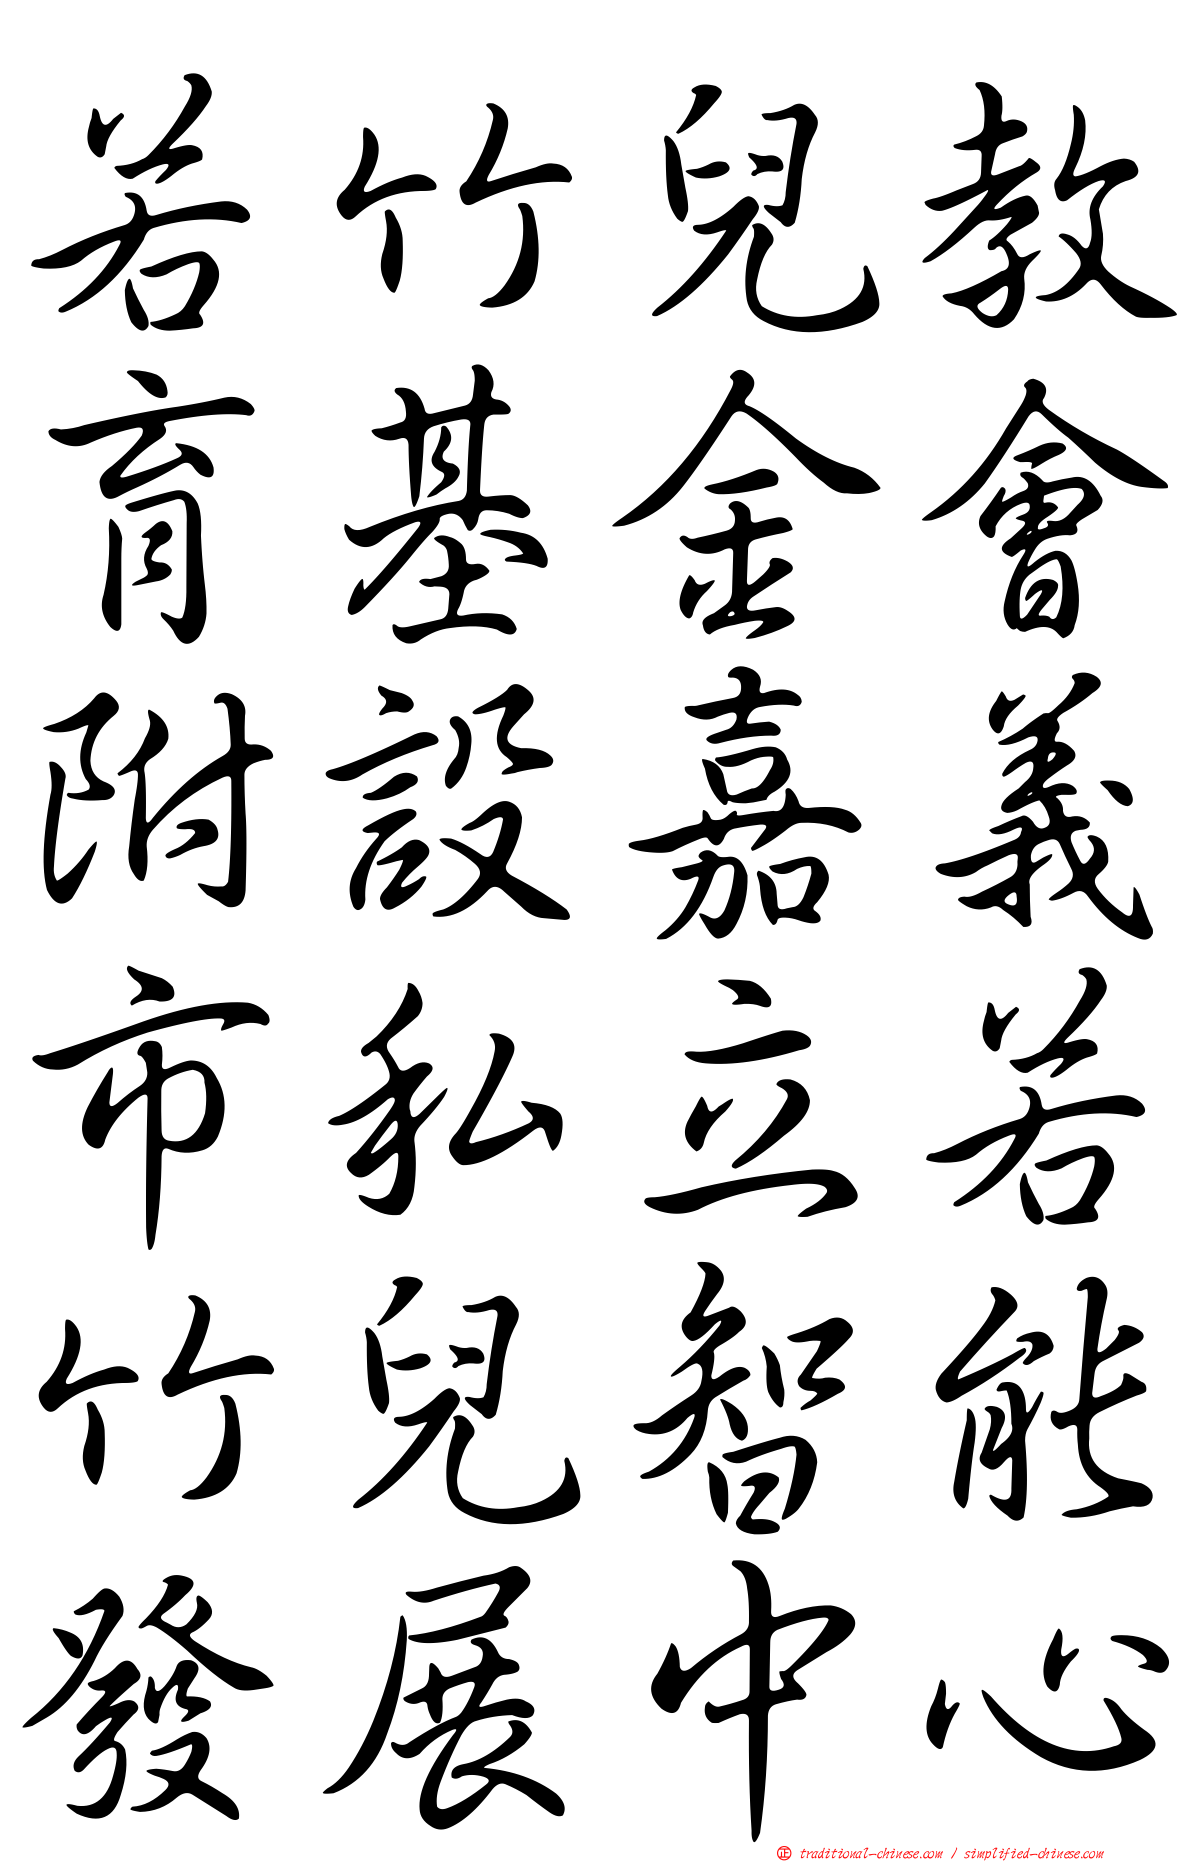 若竹兒教
育基金會
附設嘉義
市私立若
竹兒智能
發展中心
正 traditional-chinese.com / simplified-chinese.com